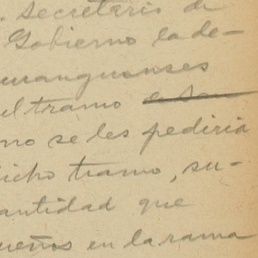 . Secretario de
Gobierno la de-
uranguenses
el tramo
no se les pediria
icho tramo, su-
antidad que
ueños en la rama